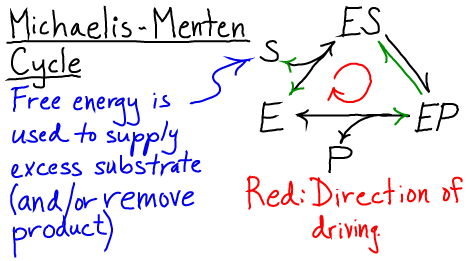 Michaelis-Menten
Cycle
Free energy is
used to supply
excess substrate
(and/or remove
product)
ES
S
E
EP
P
Red: Direction of
driving.